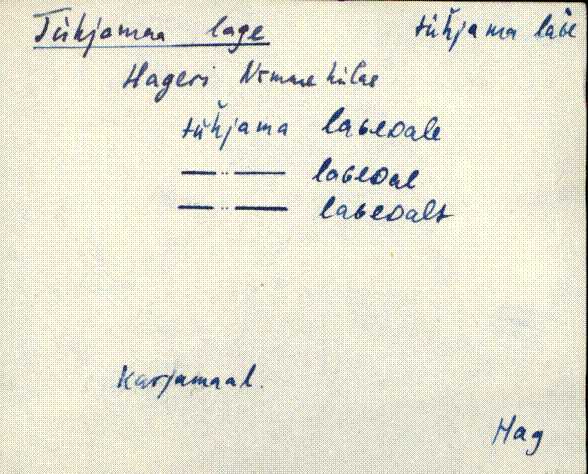 Tühjamaa lage tühjama laɢe
Hageri Nõmme küla
tühjama laɢeᴅale
— ·· — laɢeᴅal
— ·· — laɢeᴅalt
Karjamaal.
Hag